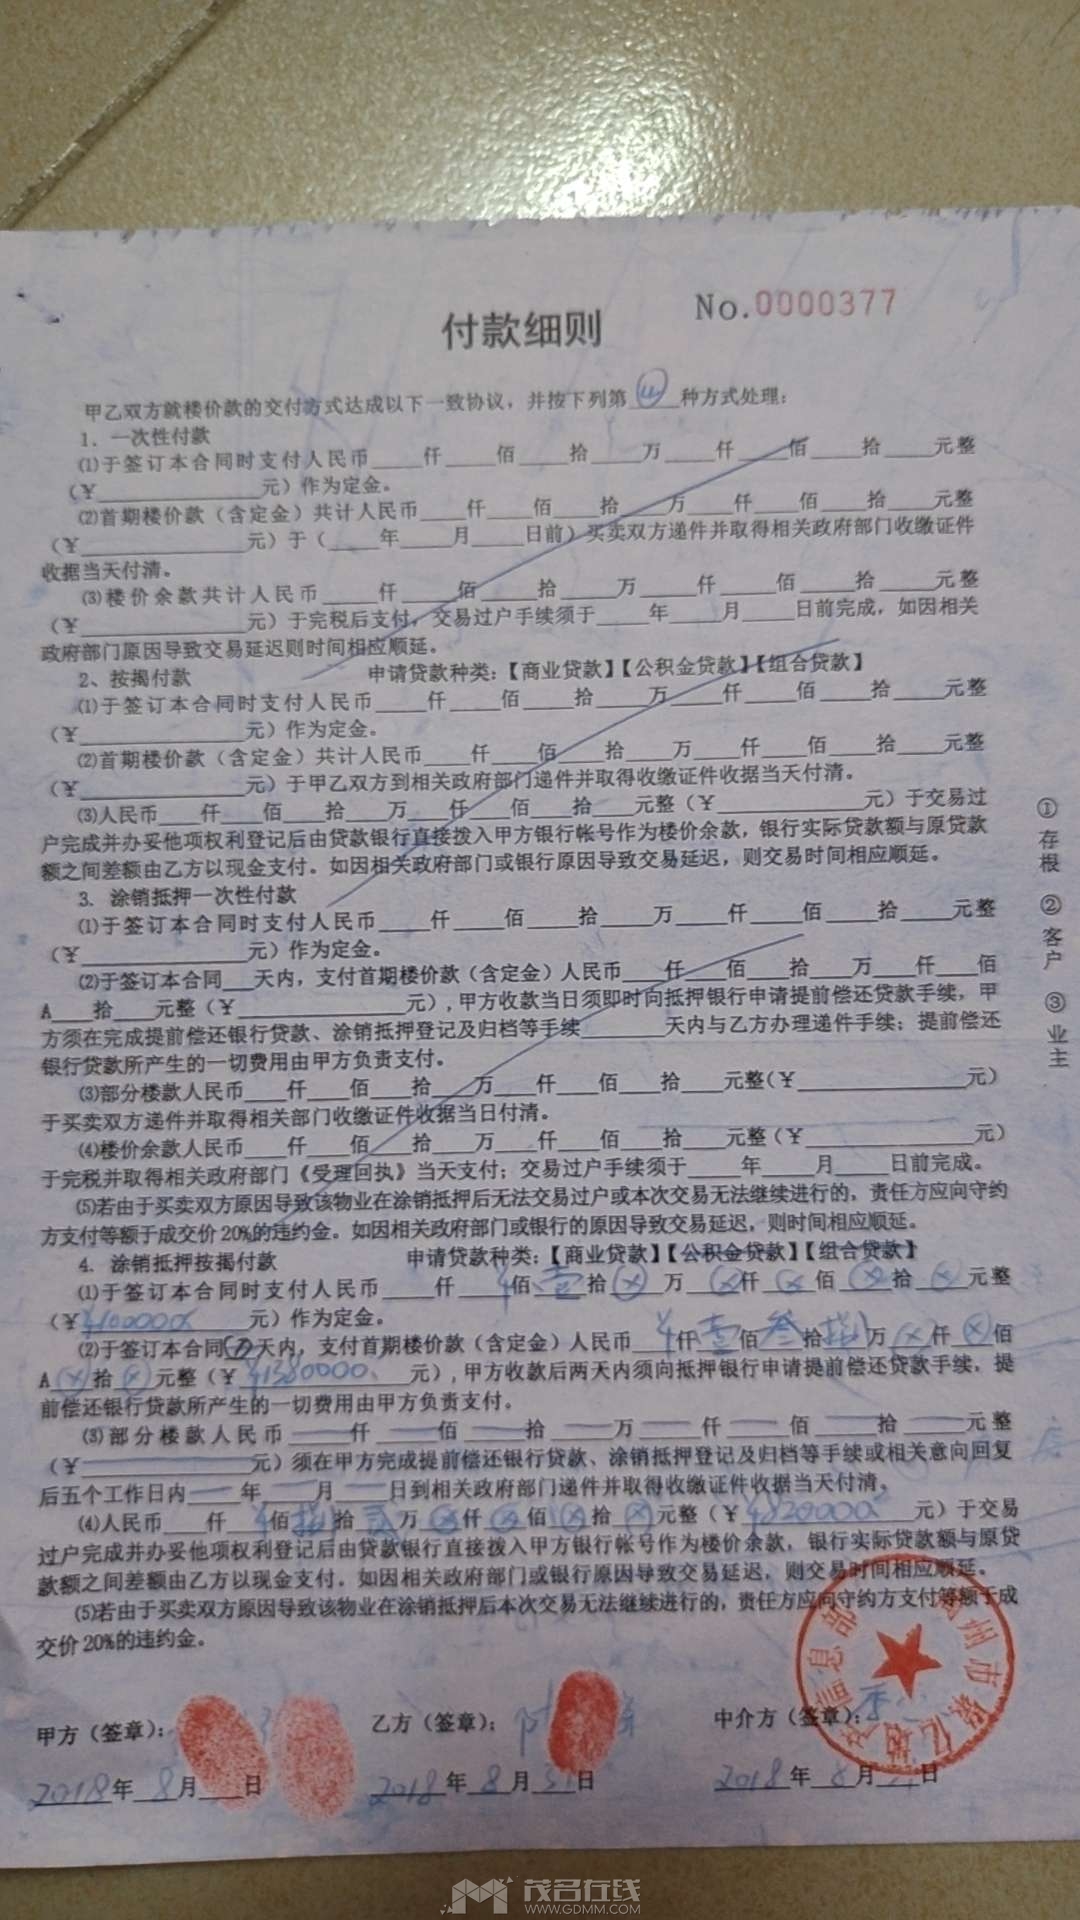 付款细则
No.0000377
甲乙双方就楼价款的交付方式达成以下一致协议，并按下列第 ④ 种方式处理：
1．一次性付款
⑴于签订本合同时支付人民币____仟____佰____拾____万____仟____佰____拾____元整
（￥____________元）作为定金。
⑵首期楼价款（含定金）共计人民币____仟____佰____拾____万____仟____佰____拾____元整
（￥____________元）于（____年____月____日前）买卖双方递件并取得相关政府部门收缴证件
收据当天付清。
⑶楼价余款共计人民币____仟____佰____拾____万____仟____佰____拾____元整
（￥____________元）于完税后支付，交易过户手续须于____年____月____日前完成，如因相关
政府部门原因导致交易延迟则时间相应顺延。
2、按揭付款 申请贷款种类：【商业贷款】【公积金贷款】【组合贷款】
⑴于签订本合同时支付人民币____仟____佰____拾____万____仟____佰____拾____元整
（￥____________元）作为定金。
⑵首期楼价款（含定金）共计人民币____仟____佰____拾____万____仟____佰____拾____元整
（￥____________元）于甲乙双方到相关政府部门递件并取得收缴证件收据当天付清。
⑶人民币____仟____佰____拾____万____仟____佰____拾____元整（￥____________元）于交易过
户完成并办妥他项权利登记后由贷款银行直接拨入甲方银行帐号作为楼价余款，银行实际贷款额与原贷款
额之间差额由乙方以现金支付。如因相关政府部门或银行原因导致交易延迟，则交易时间相应顺延。
3．涂销抵押一次性付款
⑴于签订本合同时支付人民币____仟____佰____拾____万____仟____佰____拾____元整
（￥____________元）作为定金。
⑵于签订本合同____天内，支付首期楼价款（含定金）人民币____仟____佰____拾____万____仟____佰
A____拾____元整（￥____________元），甲方收款当日须即时向抵押银行申请提前偿还贷款手续，甲
方须在完成提前偿还银行贷款、涂销抵押登记及归档等手续________天内与乙方办理递件手续；提前偿还
银行贷款所产生的一切费用由甲方负责支付。
⑶部分楼款人民币____仟____佰____拾____万____仟____佰____拾____元整（￥____________元）
于买卖双方递件并取得相关部门收缴证件收据当日付清。
⑷楼价余款人民币____仟____佰____拾____万____仟____佰____拾____元整（￥____________元）
于完税并取得相关政府部门《受理回执》当天支付；交易过户手续须于____年____月____日前完成。
⑸若由于买卖双方原因导致该物业在涂销抵押后无法交易过户或本次交易无法继续进行的，责任方应向守约
方支付等额于成交价20%的违约金。如因相关政府部门或银行的原因导致交易延迟，则时间相应顺延。
4．涂销抵押按揭付款 申请贷款种类：【商业贷款】【公积金贷款】【组合贷款】
⑴于签订本合同时支付人民币____仟 ¥ 佰 壹 拾 ⊗ 万 ⊗ 仟 ⊗ 佰 ⊗ 拾 ⊗ 元整
（￥ ¥100000 元）作为定金。
⑵于签订本合同 天内，支付首期楼价款（含定金）人民币 ¥ 仟 壹 佰 叁 拾 万 ⊗ 仟 ⊗ 佰
A ⊗ 拾 ⊗ 元整（￥ ¥1380000 元），甲方收款后两天内须向抵押银行申请提前偿还贷款手续，提
前偿还银行贷款所产生的一切费用由甲方负责支付。
⑶部分楼款人民币 — 仟 — 佰 — 拾 — 万 — 仟 — 佰 — 拾 — 元整
（￥____________元）须在甲方完成提前偿还银行贷款、涂销抵押登记及归档等手续或相关意向回复
后五个工作日内 — 年 — 月 — 日到相关政府部门递件并取得收缴证件收据当天付清。
⑷人民币____仟 ¥ 佰 捌 拾 贰 万 ⊗ 仟 ⊗ 佰 ⊗ 拾 ⊗ 元整（￥ ¥820000 元）于交易
过户完成并办妥他项权利登记后由贷款银行直接拨入甲方银行帐号作为楼价余款，银行实际贷款额与原贷
款额之间差额由乙方以现金支付．如因相关政府部门或银行原因导致交易延迟，则交易时间相应顺延。
⑸若由于买卖双方原因导致该物业在涂销抵押后本次交易无法继续进行的，责任方应向守约方支付等额于成
交价20%的违约金。
甲方（签章）： 乙方（签章）： 中介方（签章）：
2018年8月 日 2018年8月31日 2018年8月 日
① 存根 ② 客户 ③ 业主
州市 信息部
茂名在线
WWW.GDMM.COM